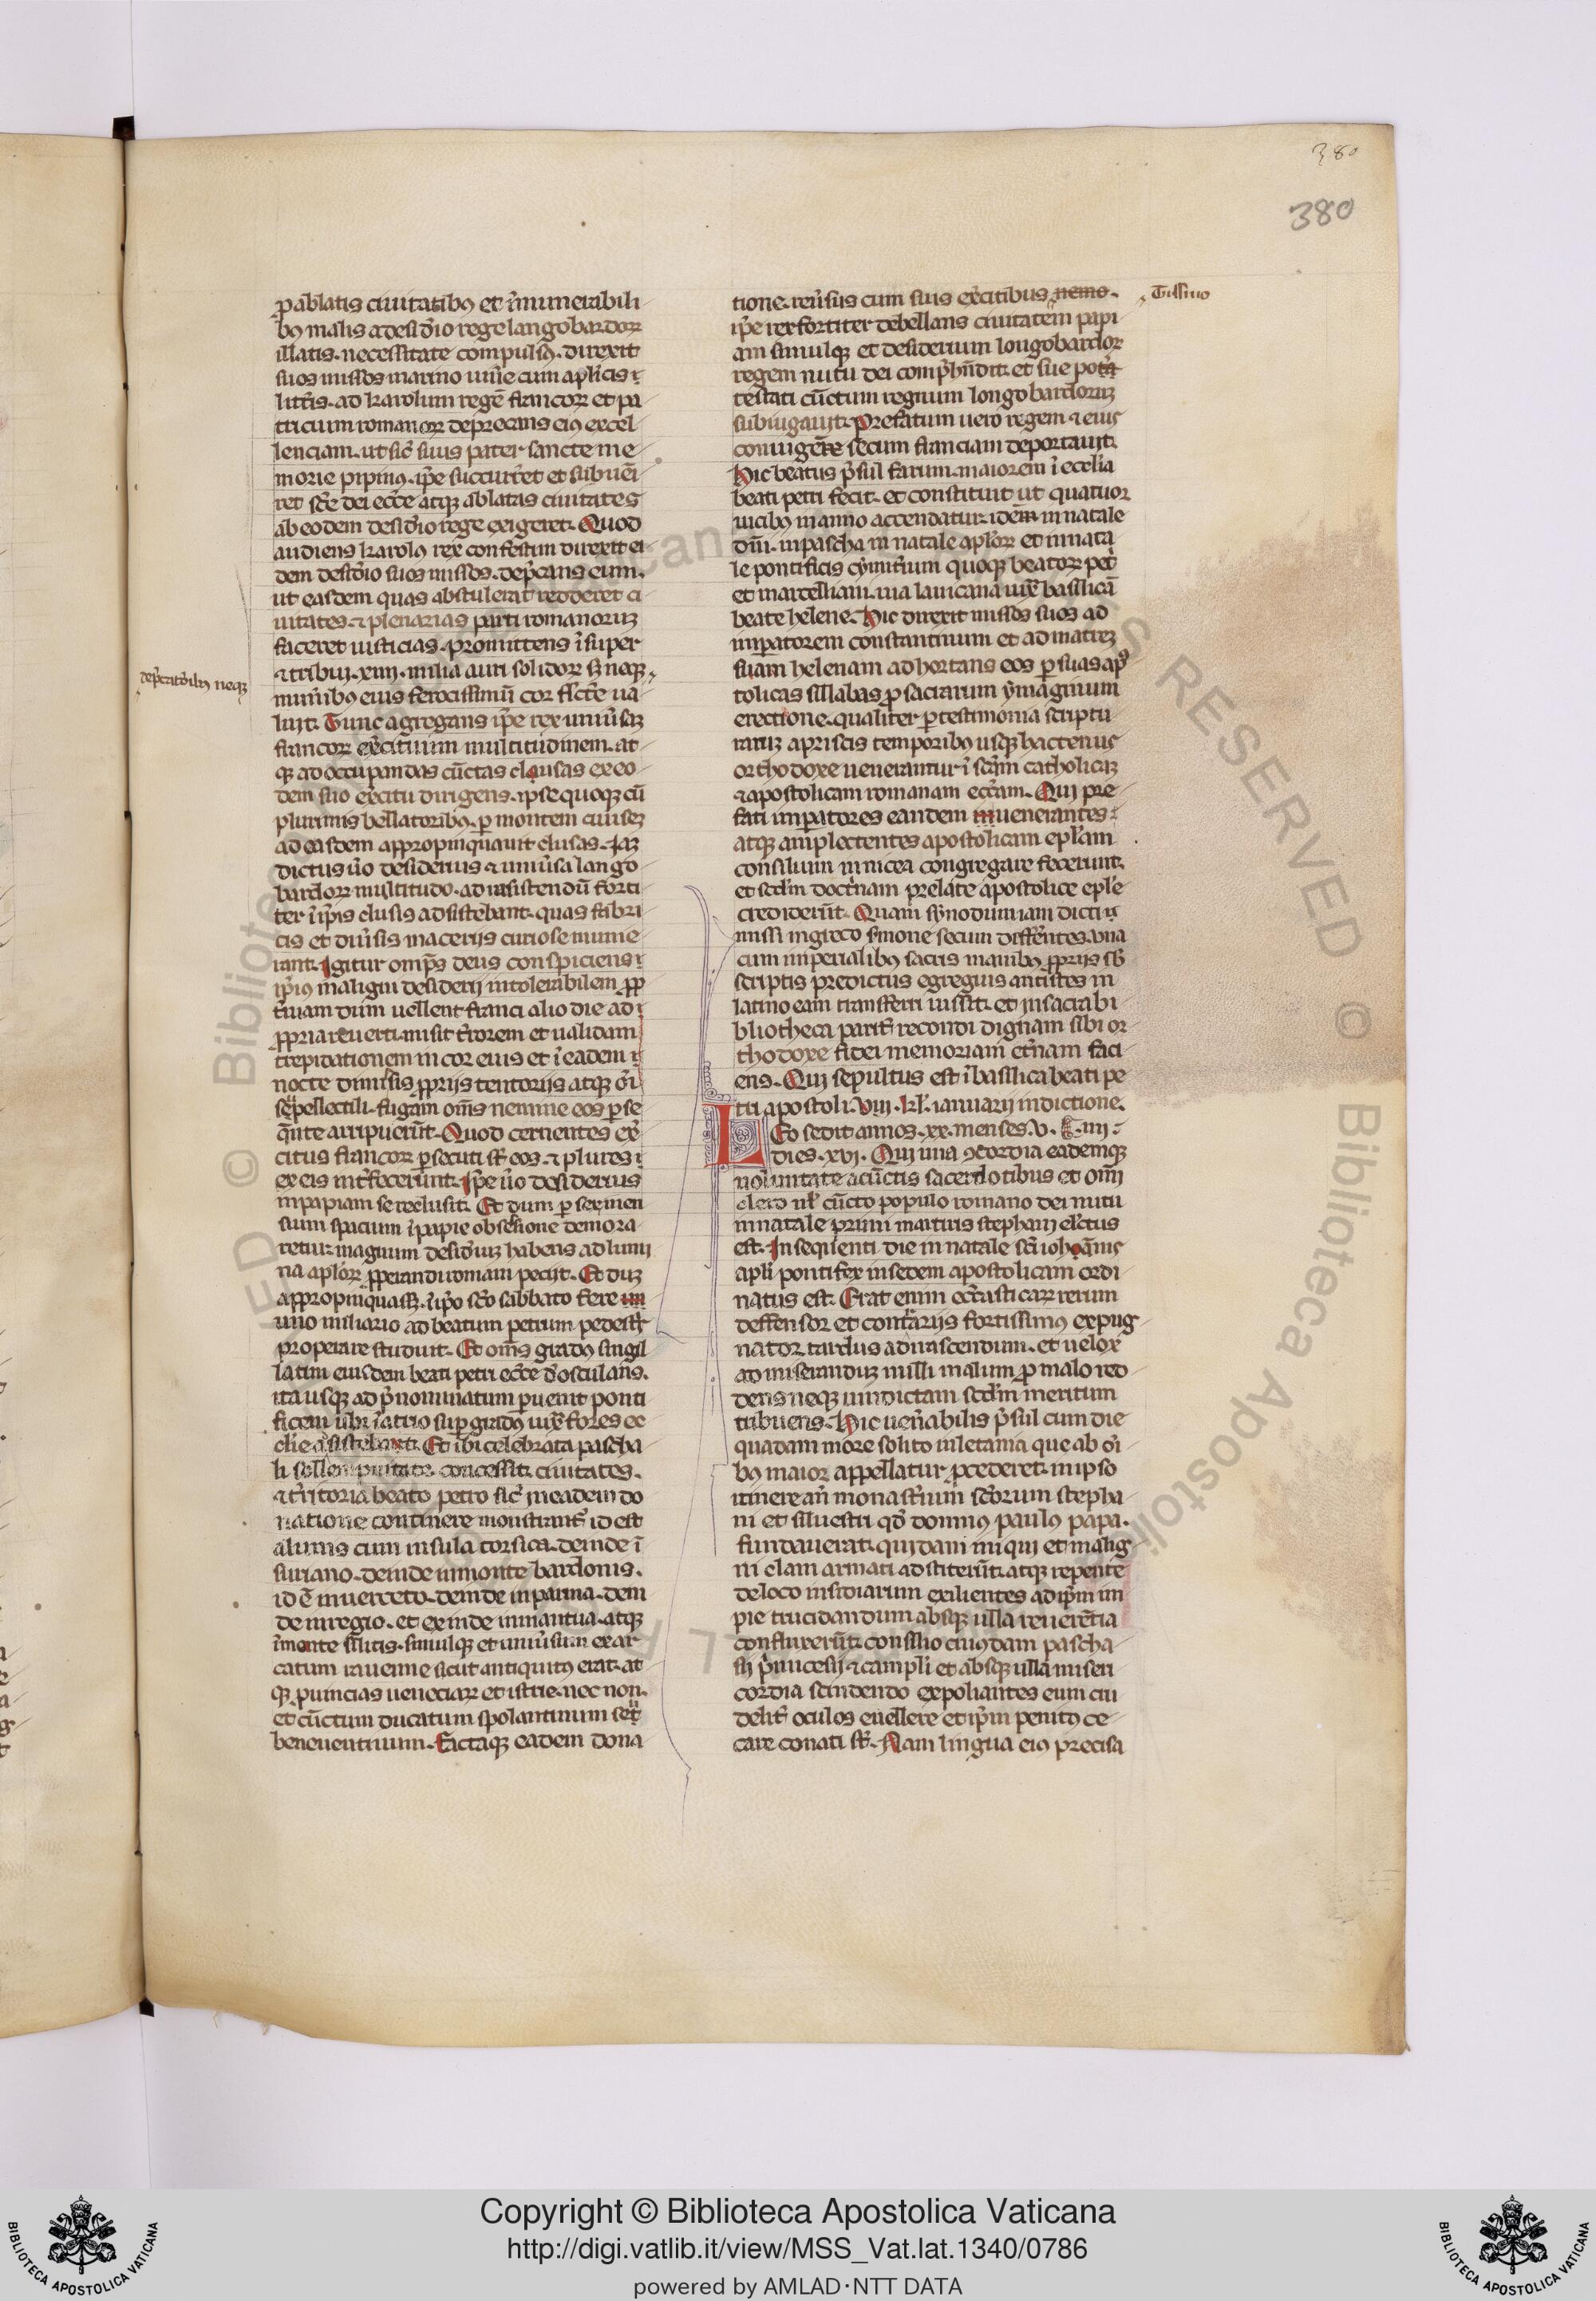 380
380
ꝑ ablatis ciuitatibꝰ et ĩnumerabili
bꝰ malis a desid̾io rege langobardoꝝ
illatis. necessitate compulsꝰ. direxit
suos missos marino itin̾e cum aplicis
litt̾is. ad karolum regẽ francoꝝ et pa
tricium romanoꝝ deprecans eiꝰ excel
lenciam. ut sic̾ suus pater sancte me
morie pipinꝰ. ip̃e succurr̾et et subueĩ
ret sc̃e dei ecc̃e atqꝫ ablatas ciuitates
ab eodem desid̾io rege exigeret. Quod
audiens karolꝰ rex confestim direxit ei
dem desid̾io suos missos. dep̾cans eum.
ut easdem quas abstulerat redderet ci
uitates. ⁊ plenarias parti romanoruꝫ
faceret iusticias. promittens ĩsuper
⁊ tribui. xiiii. milia auri solidoꝝ sꝫ neqꝫ
dep̾catōibꝰ neqꝫ
mun̾ibꝰ eius ferocissimũ cor flc̃te ua
luit. Tunc agregans ip̃e rex uniu̾saꝫ
francoꝝ ex̾cituum multitudinem. at
qꝫ ad occupandas cũctas clausas ex eo
dem suo ex̾citu dirigens. ipse quoqꝫ cũ
plurimis bellatoribꝰ. ꝑ montem ciniseꝫ
ad easdem appropinquauit clusas. Iaꝫ
dictus u̾o desiderius ⁊ uniu̾sa lango
bardoꝝ multitudo. ad resistendũ forti
ter ĩ ip̃is clusis adsistebant. quas fabri
cis et diu̾sis macerijs curiose mune
rant. Igitur omp̃s deus conspiciens
ip̃iꝰ maligni desiderij intolerabilem ꝓp
t̾uiam dum uellent franci alio die ad
ꝓpria reuerti. misit t̾rorem et ualidam
trepidationem in cor eius et ĩ eadem
nocte dimisis ꝓprijs tentorijs atqꝫ oĩ
sup̾pellectili. fugam om̃s nemine eos ꝑse
q̃nte arripuer̃t. Quod cernentes ex̾
citus francoꝝ ꝑsecuti st̃ eos. ⁊ plures
ex eis int̾fecerunt. Ip̃e u̾o desiderius
in papiam se reclusit. Et dum ꝑ sex men
sium spacium ĩ papie obsesione demora
retur. magnum desid̾iuꝫ habens ad limi
na apl̾oꝝ ꝓperandi romam pecijt. Et duꝫ
appropinquass̾. ĩ ip̃o sc̃o sabbato fere
uno miliario ad beatum petrum pedest̾
properare studuit. Et om̃s gradꝰ singil
latim eiusdem beati petri ecc̃e d̾osculans.
ita usqꝫ ad p̾nominatum puenit ponti
ficem ubi ĩ atrio sup gradꝰ iux̃ fores ec
cl̾ie assistebat. Et ibi celebrata pascha
li sollempnitate. concessit ciuitates.
⁊ t̾ritoria beato petro sic̾ in eadem do
natione continere monstrant̾ id est
alunis cum insula corsica. deinde ĩ
suriano. deinde in monte bardonis.
id ẽ in uerceto. deinde in parma. dein
de in regio. et exinde in mantua. atqꝫ
ĩ monte silitis. simulqꝫ et uniu̾sum exar
catum rauenne sicut antiquitꝰ erat. at
qꝫ puincias ueneciaꝝ et istrie. nec non.
et cũctum ducatum spolantinum seu̾
beneuentinum. Factaqꝫ eadem dona
tione. reu̾sus cum suis ex̾citibus nemo.
Tissino
ip̃e rex fortiter debellans ciuitatem papi
am simulqꝫ et desiderium longobardoꝝ
regem nutu dei comp̾hn̾dit. et sue po
testati cũctum regnum longobardoruꝫ
subiugauit. Prefatum uero regem ⁊ eius
coniugem secum franciam deportauit.
Hic beatus p̾sul farum maiorem ĩ eccl̾ia
beati petri fecit. et constituit ut quatuor
uicibꝰ in anno accendatur. idem in natale
dñi. in pascha in natale apl̾oꝝ et in nata
le pontificis cymit̾ium quoqꝫ beatoꝝ pet̾
et marcelliani. uia lauicana iux̃ basilicã
beate helene. Hic direxit missos suos ad
imꝑatorem constantinum et ad matreꝫ
suam helenam adhortans eos ꝑ suas apꝰ
tolicas sillabas ꝓ sacrarum ymaginum
erectione. qualiter ꝑ testimonia scriptu
raruꝫ a priscis temporibꝰ usqꝫ hactenus
orthodoxe uenerantur ĩ sc̃am catholicaꝫ
⁊ apostolicam romanam ecc̃am. Qui pre
fati imꝑatores eandem uenerantes
atqꝫ amplectentes apostolicam epl̾am
consilium in nicea congregare fecerunt.
et scd̾m doct̾nam prelate apostolice epl̾e
crediderũt. Quam synodum iam dicti
missi in greco s̾mone secum diffe̾ntes. una
cum imperialibꝰ sacris manibꝰ ꝓprijs sb̾
scriptis predictus egregius antistes in
latino eam transferri iussit. et in sacra bi
bliotheca parit̾ recondi dignam sibi or
thodoxe fidei memoriam et̾nam faci
ens. Qui sepultus est ĩ basilica beati pe
tri apostoli. viii. kl̾. ianuarij indictione.
Leo sedit annos. xx. menses. v. iiij.
dies. xvi. Qui una ꝯcordia eademqꝫ
uoluntate a cũctis sacerdotibus et om̃i
clero ul̾ cũcto populo romano dei nutu
in natale primi martiris stephani el̾ctus
est. In sequenti die in natale sc̃i ioh̾anis
apl̾i pontifex in sedem apostolicam ordi
natus est. Erat enim ecc̾asticaꝝ rerum
deffensor et cont̾arijs fortissimus expug
nator. tardus ad irascendum. et uelox
ad miserandũ nulli malum ꝓ malo red
dens neqꝫ uindictam scd̾m meritum
tribuens. Hic uen̾abilis p̾sul cum die
quadam more solito in letania que ab oĩ
bꝰ maior appellatur ꝓcederet. in ipso
itinere an̾ monast̾ium sc̾orum stepha
ni et siluestri qd̾ domnꝰ paulꝰ papa.
fundauerat. quidam iniqui et malig
ni clam armati adstiter̃t. atqꝫ repente
de loco insidiarum exilientes ad ip̃m im
pie trucidandum absqꝫ ulla reuerẽtia
confluxer̃t. consilio cuiꝰdam pascha
sij p̾micesij ⁊ campli et absqꝫ ulla miseri
cordia scindendo expoliantes eum cru
delit̾ oculos euellere et ip̃m penitꝰ ce
care conati st̃. Nam lingua eiꝰ precisa
Copyright © Biblioteca Apostolica Vaticana
http://digi.vatlib.it/view/MSS_Vat.lat.1340/0786
powered by AMLAD·NTT DATA